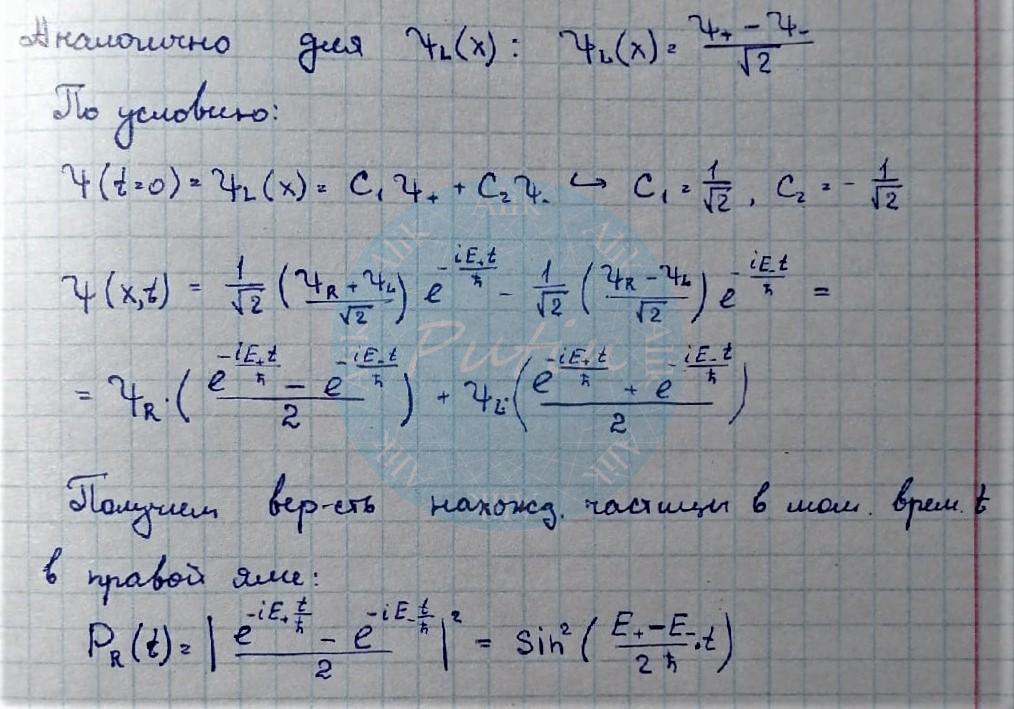 Аналогично для Ψ_L(x): Ψ_L(x) = (Ψ₊ − Ψ₋)/√2
По условию:
Ψ(t=0) = Ψ_L(x) = C₁Ψ₊ + C₂Ψ₋ ↪ C₁ = 1/√2, C₂ = − 1/√2
Ψ(x,t) = 1/√2 ((Ψ_R + Ψ_L)/√2) e^(−iE₊t/ħ) − 1/√2 ((Ψ_R − Ψ_L)/√2) e^(−iE₋t/ħ) =
= Ψ_R · ((e^(−iE₊t/ħ) − e^(−iE₋t/ħ))/2) + Ψ_L · ((e^(−iE₊t/ħ) + e^(−iE₋t/ħ))/2)
Получаем вер-сть нахожд. частицы в мом. врем. t
в правой яме:
P_R(t) = |(e^(−iE₊t/ħ) − e^(−iE₋t/ħ))/2|² = Sin²((E₊ − E₋)/2ħ · t)
Putin
Alik
Alik
Alik
Alik
Alik
Alik